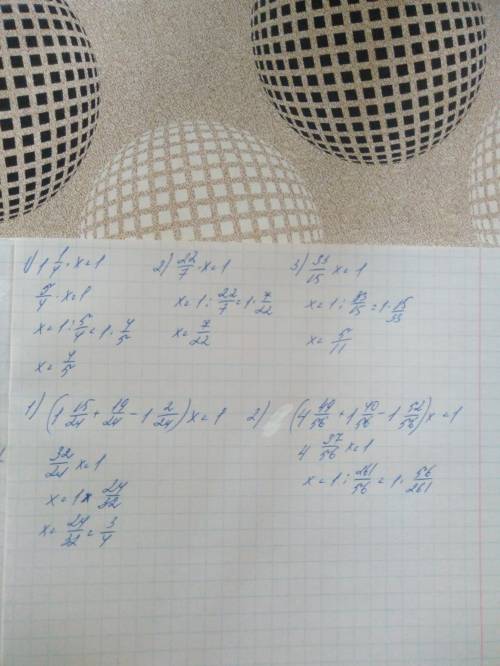 1) 1 1/4 · x = 1
5/4 · x = 1
x = 1 : 5/4 = 1 · 4/5
x = 4/5
2) 22/7 · x = 1
x = 1 : 22/7 = 1 · 7/22
x = 7/22
3) 33/15 x = 1
x = 1 : 33/15 = 1 · 15/33
x = 5/11
1) (1 15/24 + 19/24 - 1 2/24) x = 1
32/24 x = 1
x = 1 · 24/32
x = 24/32 = 3/4
2) (4 49/56 + 1 40/56 - 1 52/56) x = 1
4 37/56 x = 1
x = 1 : 261/56 = 1 · 56/261